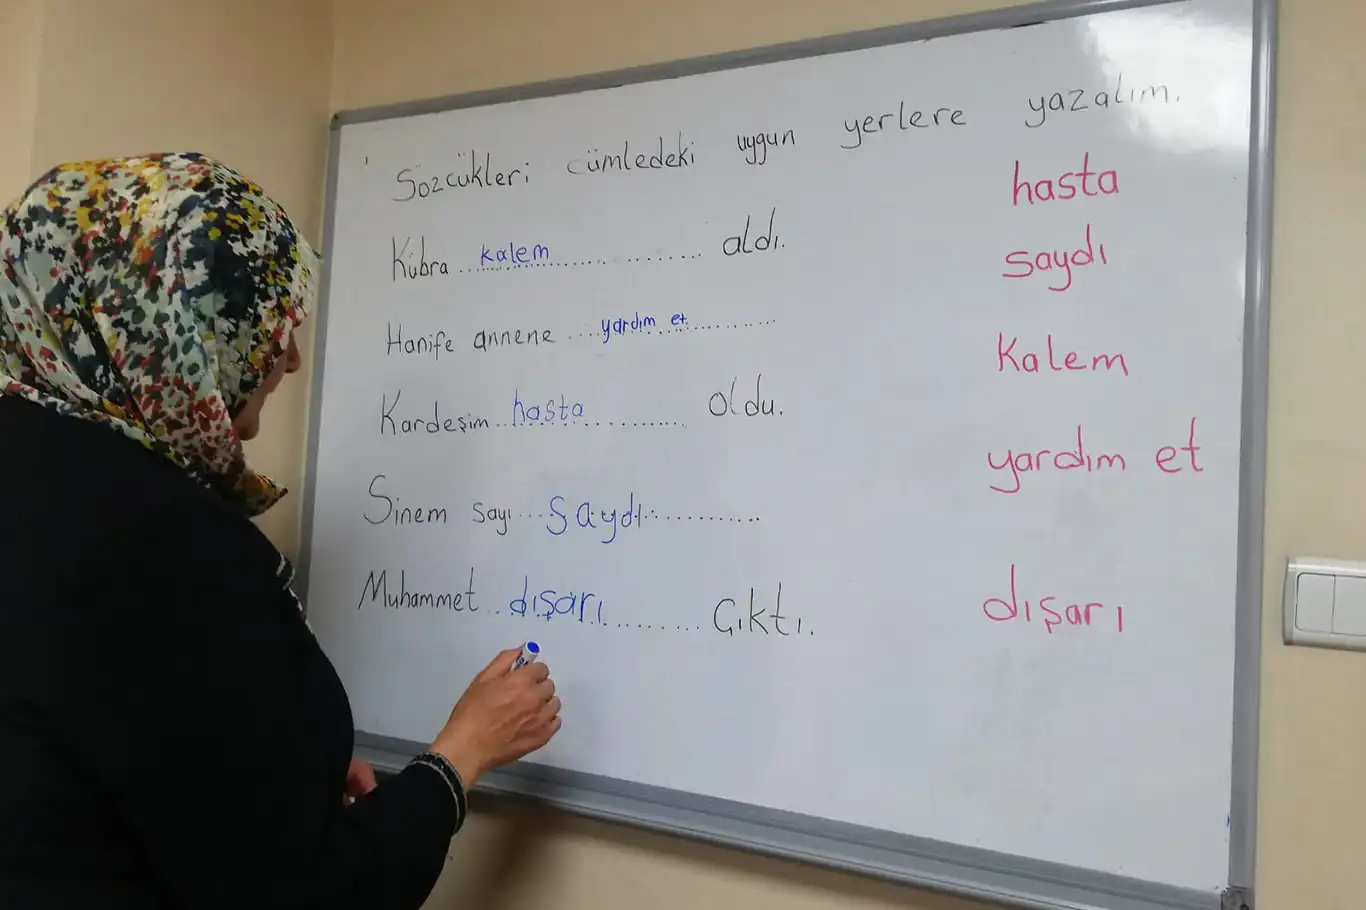 Sözcükleri cümledeki uygun yerlere yazalım.
Kübra ..kalem.................... aldı.
Hanife annene ....yardım et............
Kardeşim..hasta.............. oldu.
Sinem sayı...saydı..............
Muhammet ..dışarı............ Çıktı.
hasta
saydı
Kalem
yardım et
dışarı